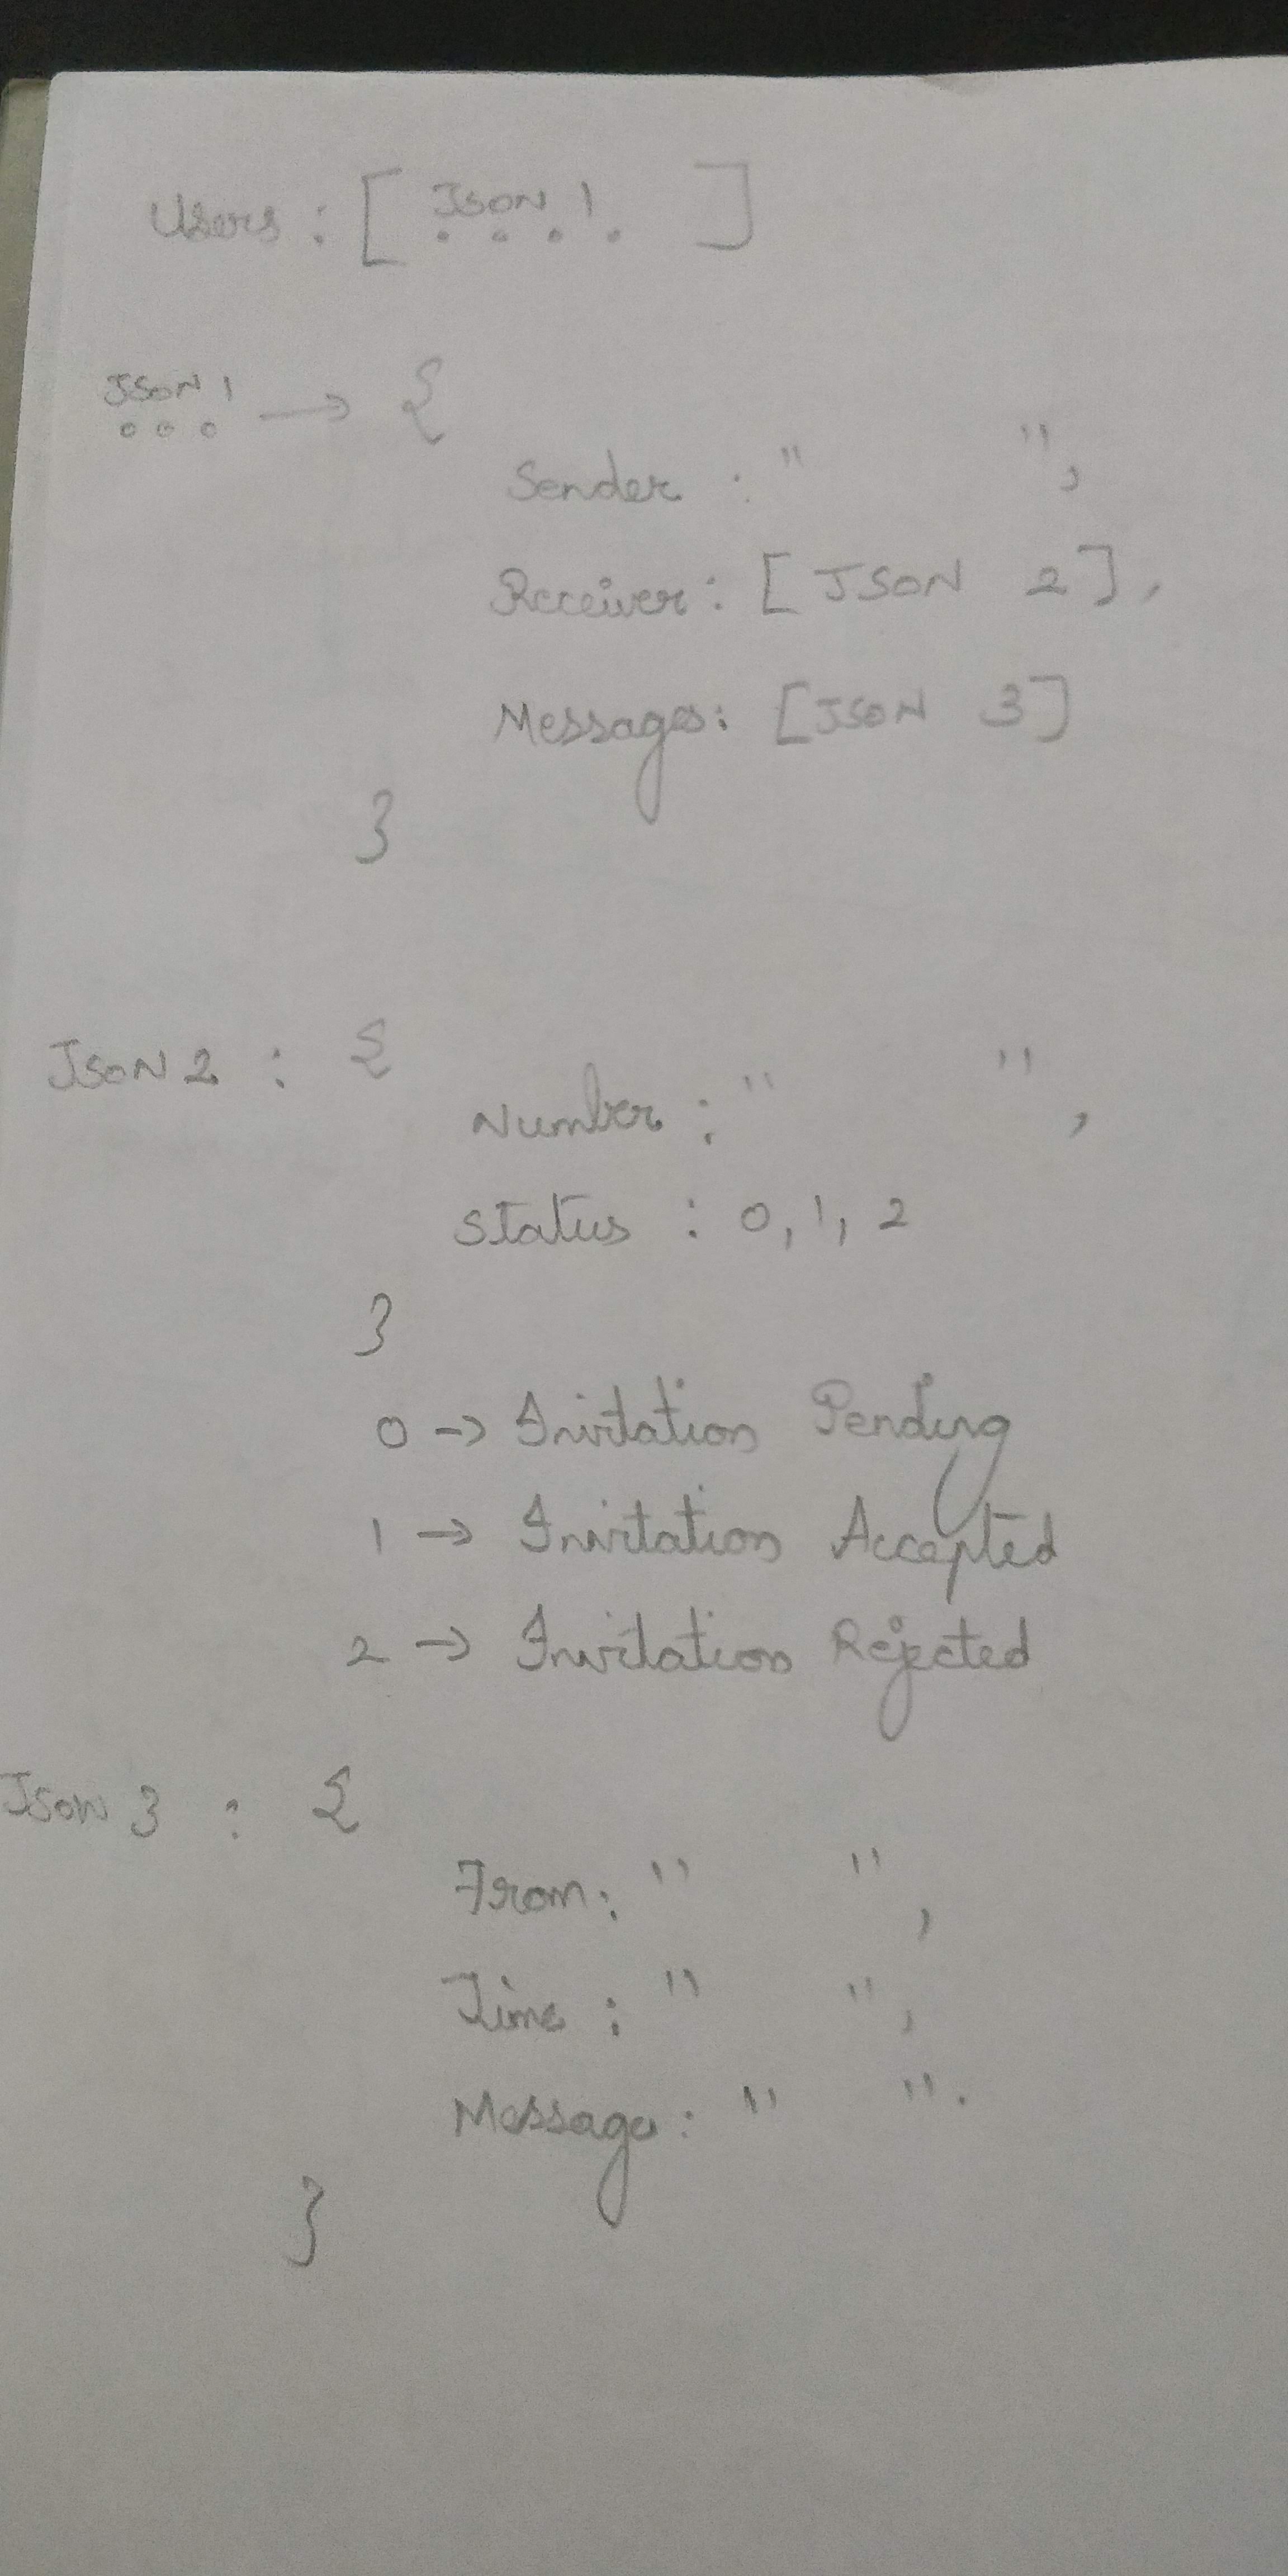 Users : [ JSON 1 . . . . ]
JSON 1 . . . → {
Sender : " ",
Receiver : [ JSON 2 ],
Messages : [ JSON 3 ]
}
JSON 2 : {
Number : " ",
Status : 0, 1, 2
}
0 → Invitation Pending
1 → Invitation Accepted
2 → Invitation Rejected
JSON 3 : {
From : " ",
Time : " ",
Message : " ".
}